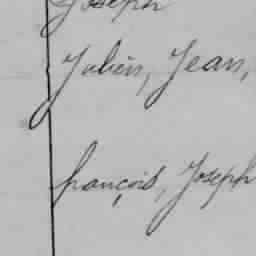 Joseph
Julien, Jean,
françois, Joseph